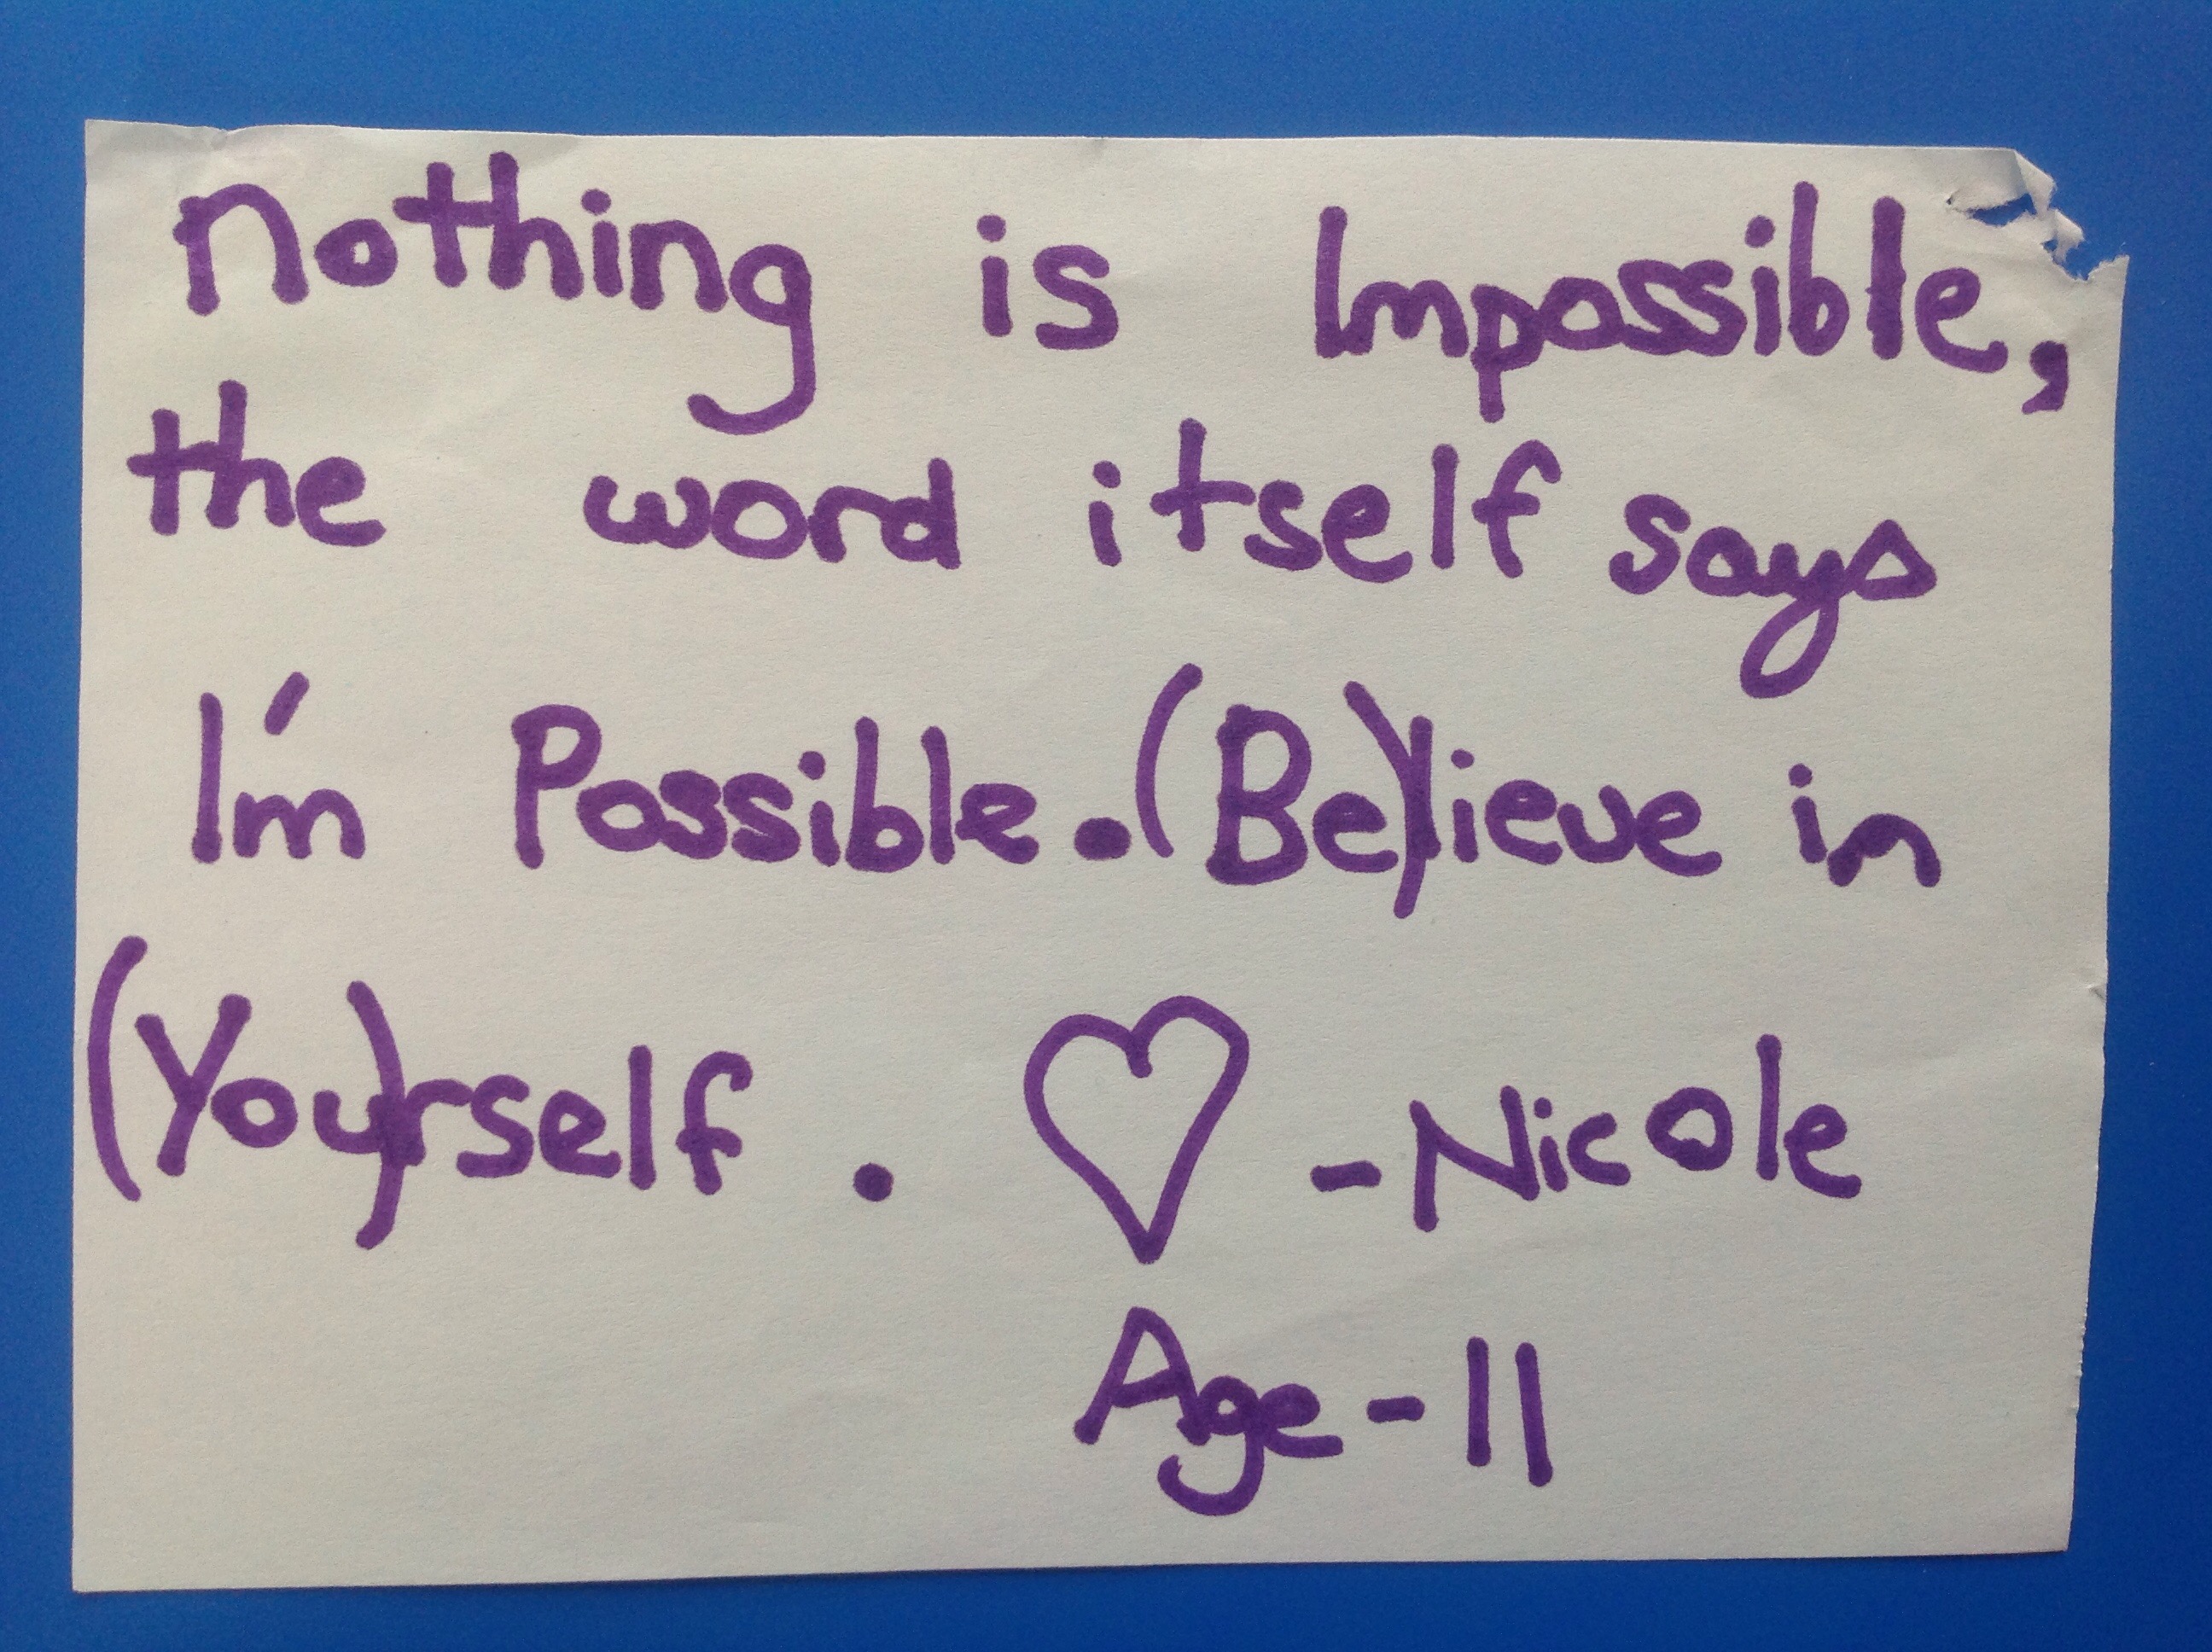 nothing is Impossible,
the word itself says
I'm Possible. (Be)lieve in
(You)rself. ♡ -Nicole
Age-11